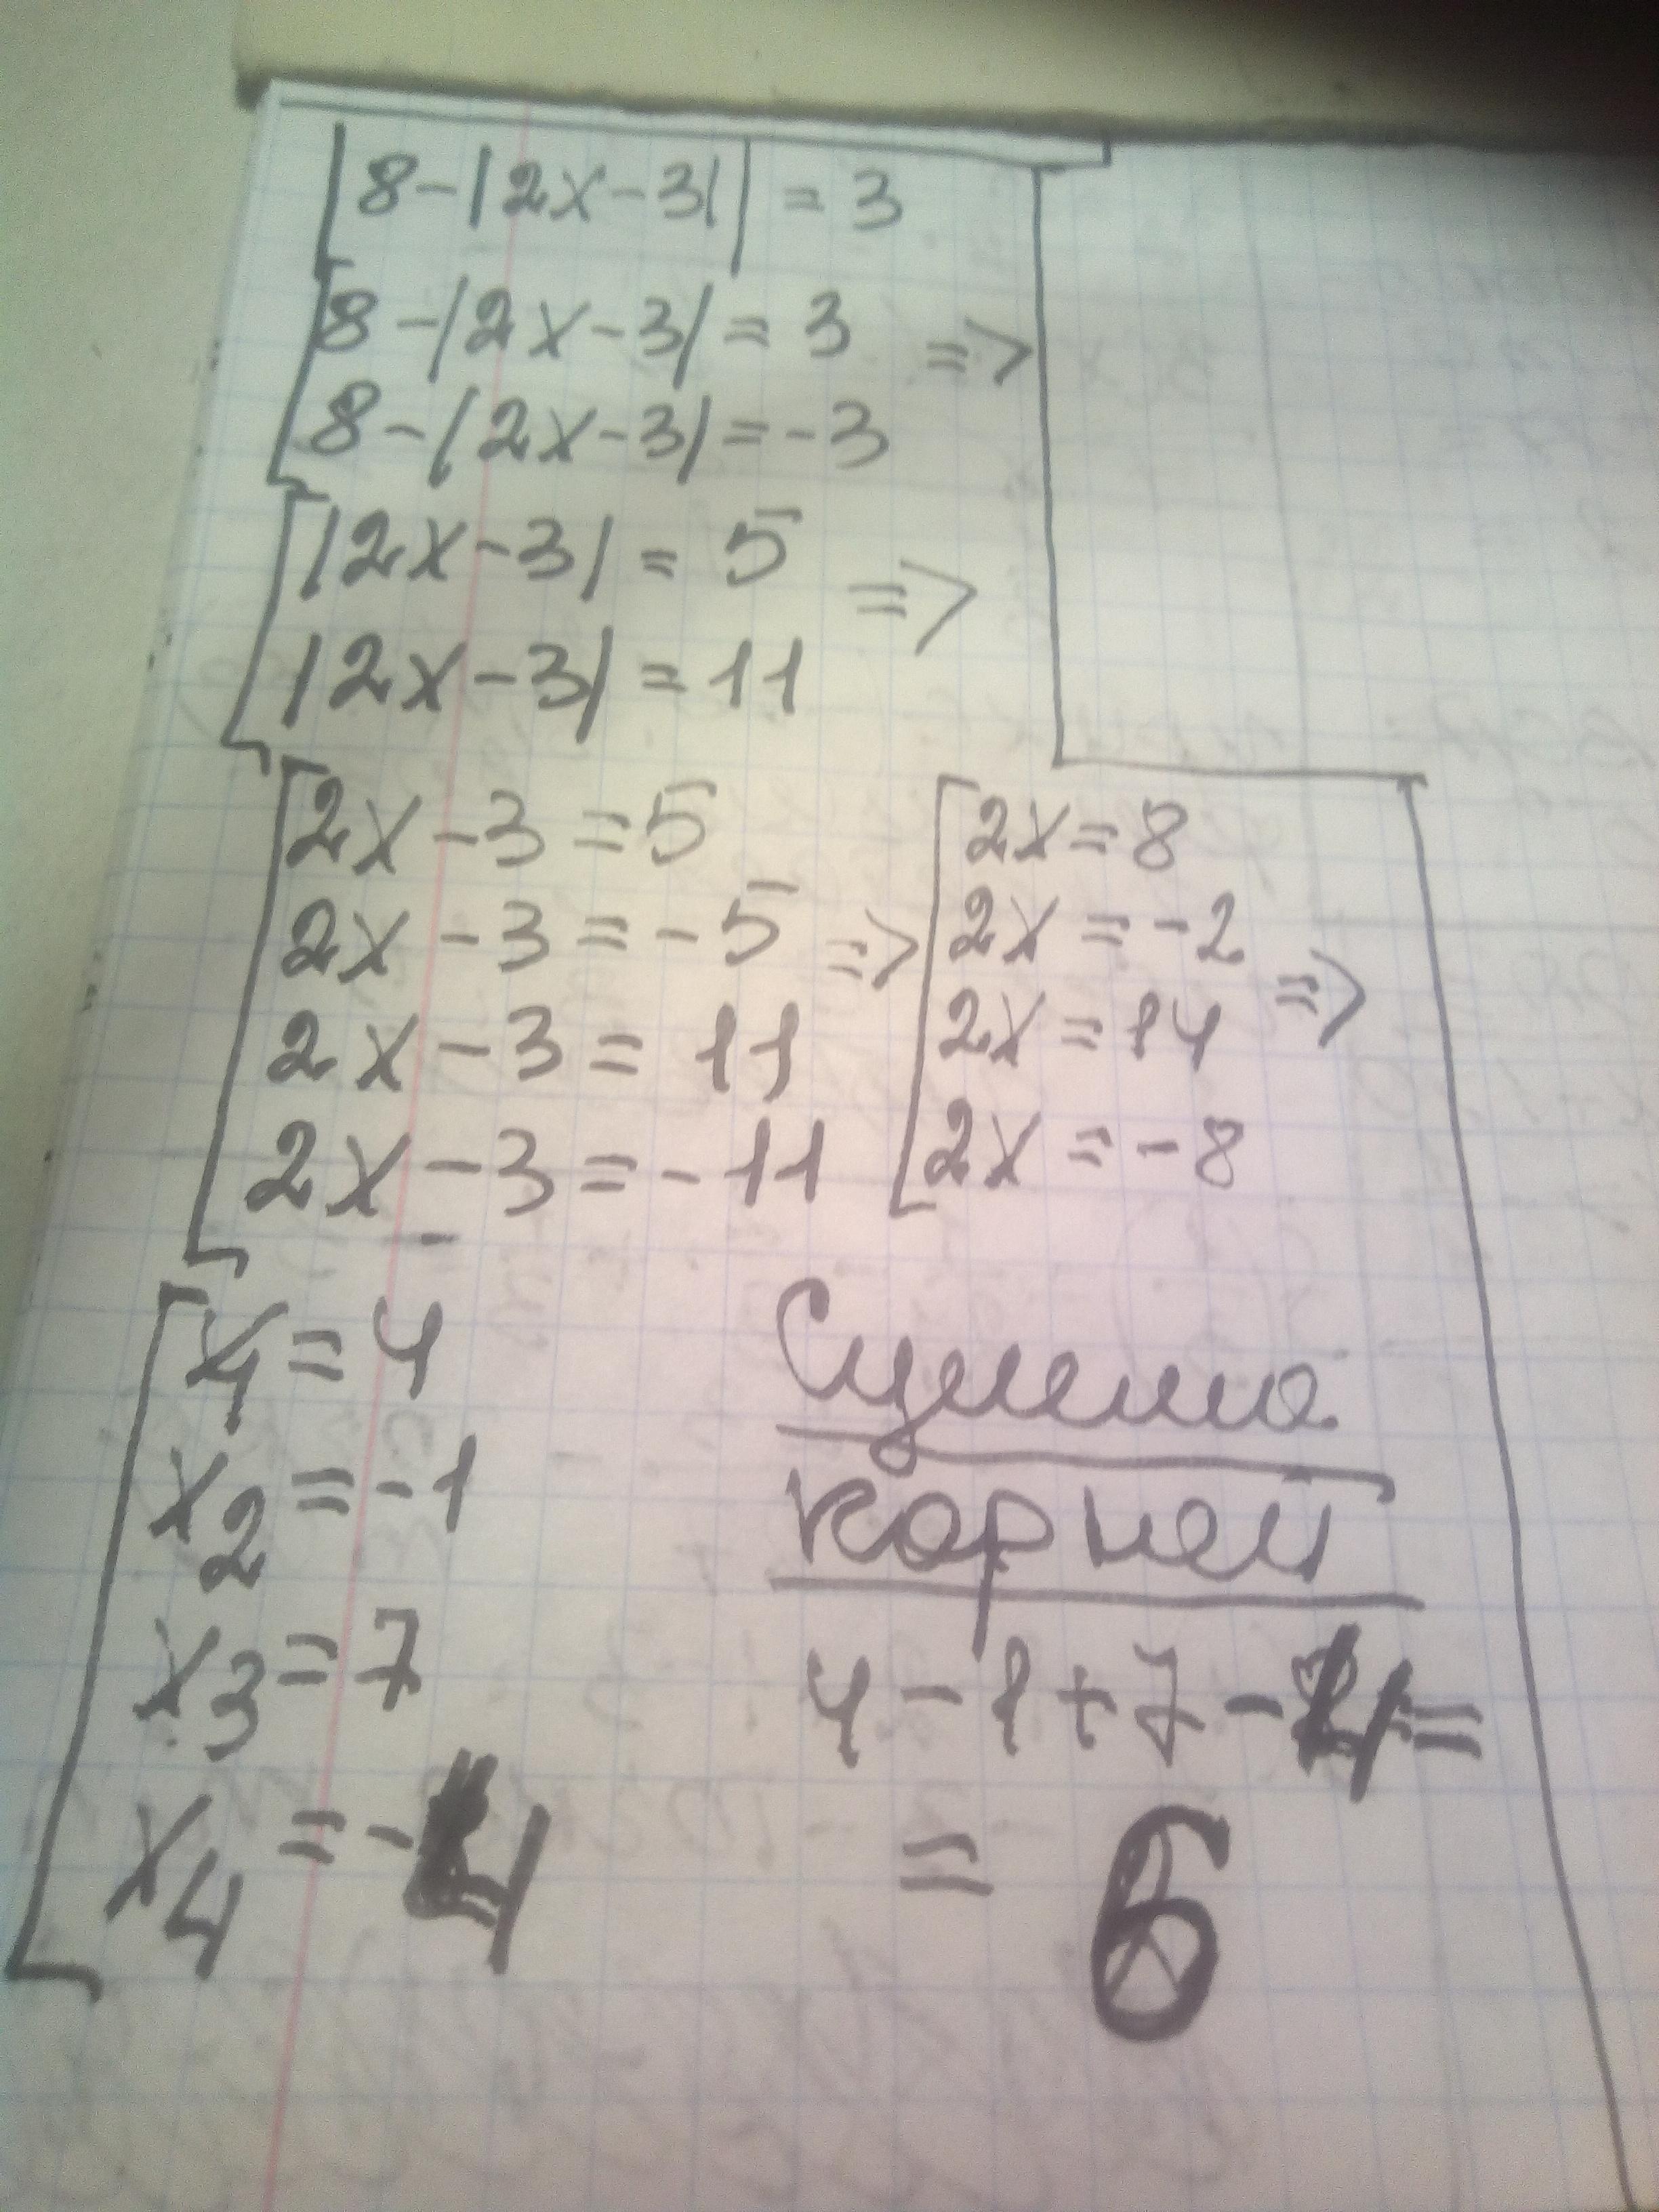 |8-|2x-3|| = 3
8-|2x-3| = 3 =>
8-|2x-3| = -3
|2x-3| = 5 =>
|2x-3| = 11
2x-3 = 5
2x-3 = -5 =>
2x-3 = 11
2x-3 = -11
2x = 8
2x = -2 =>
2x = 14
2x = -8
x1 = 4
x2 = -1
x3 = 7
x4 = -4
Сумма
корней
4-1+7-4=
= 6